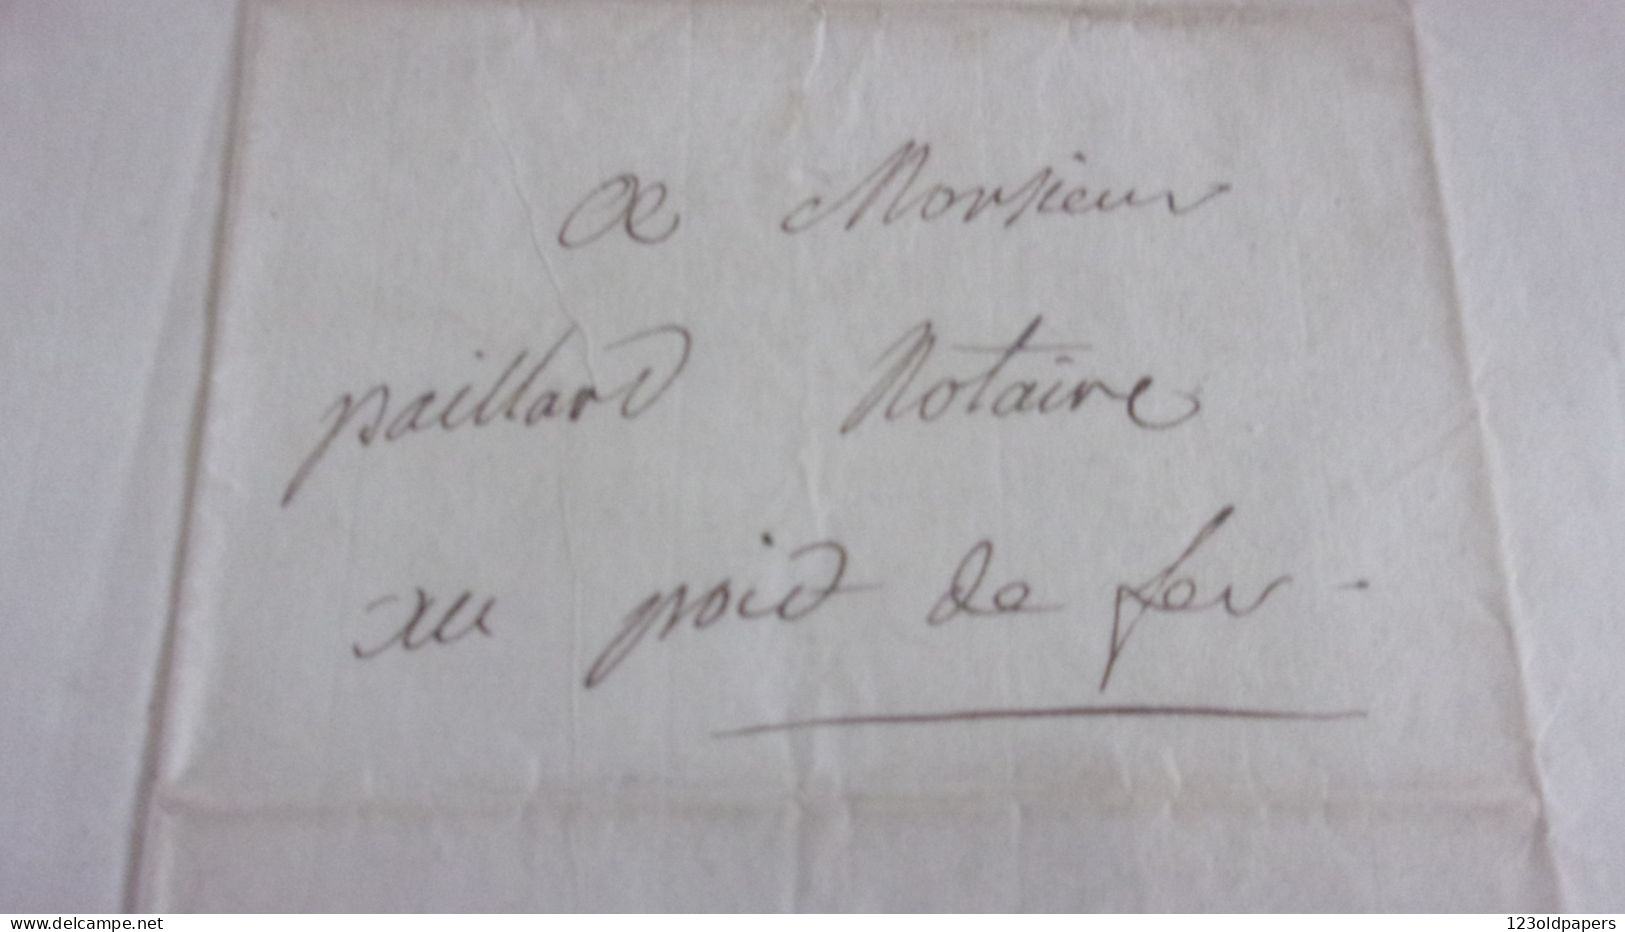 A Monsieur
paillard Notaire
au poid de fer -
www.delcampe.net
123oldpapers